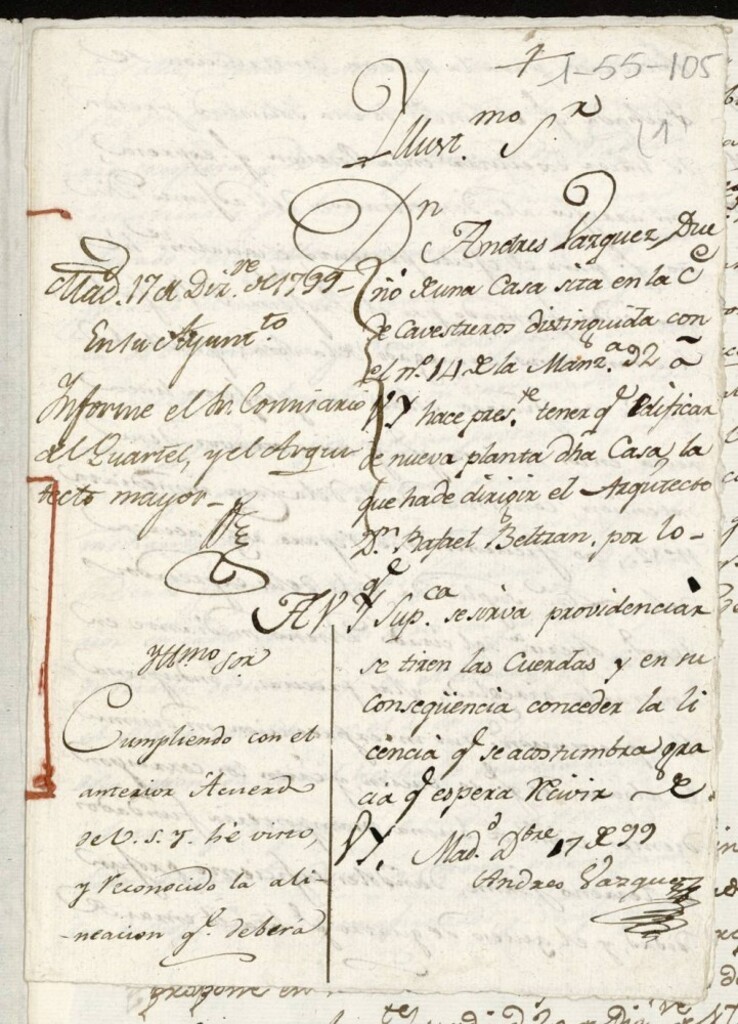 1-55-105
(1)
Yllust.mo S.r
Dn Andres Vazquez, Due
ño de una Casa sita en la C.e
de Cavestreros distinguida con
el n.o 14 de la Manz.a 92 a
V.Y. hace pres.te tener q.e edificar
de nueva planta dha Casa la
que ha de dirigir el Arquitecto
D.n Rafael Beltran, por lo-
q.e
A V.Y. Sup.ca se sirva providenciar
se tiren las Cuerdas y en su
conseqüencia conceder la li
cencia q.e se acostumbra gra
cia q.e espera Recivir de
V.Y. Mad.d Dbre 17 de 99
Andres Vazquez
Mad.d 17 de Diz.re de 1799-
En su Ayunt.to
Informe el Sr. Comisario
del Quartel, y el Arqui
tecto mayor-
Yllmo Sor
Cumpliendo con el
anterior Acuerdo
de V.S.Y. he visto,
y reconocido la ali-
neacion q.e debera